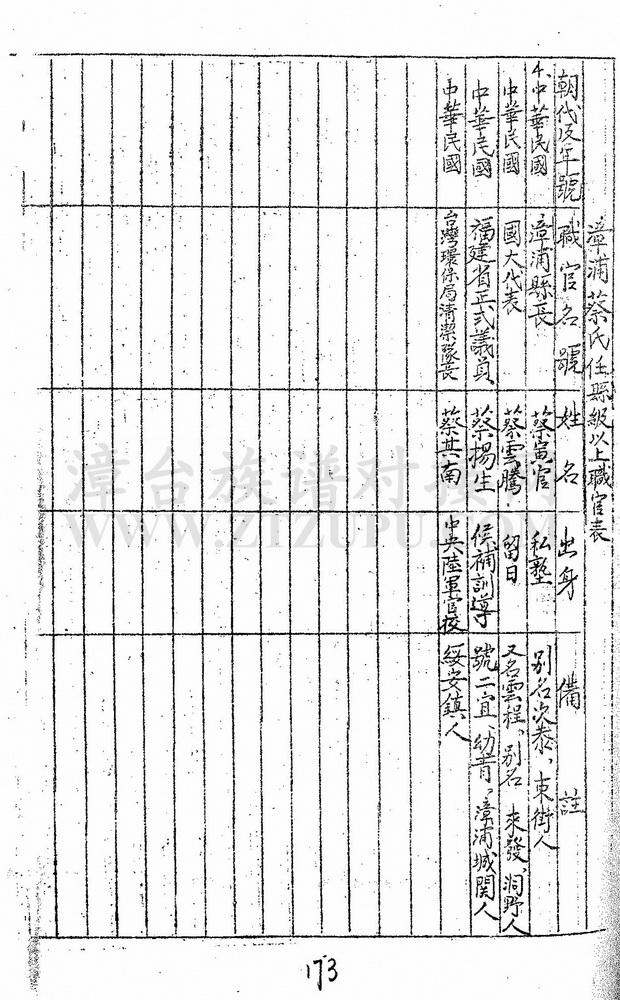 漳浦蔡氏任縣級以上職官表
朝代及年號 職官名號 姓名 出身 備註
中華民國 漳浦縣長 蔡寅官 私塾 別名次泰、東街人
中華民國 國大代表 蔡雲騰 留日 又名雲程、別名來發、洞野人
中華民國 福建省正式議員 蔡揚生 候補訓導 號二宜、幼青、漳浦城関人
中華民國 台灣環保局清潔隊長 蔡其南 中央陸軍官校 綏安鎮人
漳台族谱对接网
WWW.ZTZUPU.COM
173